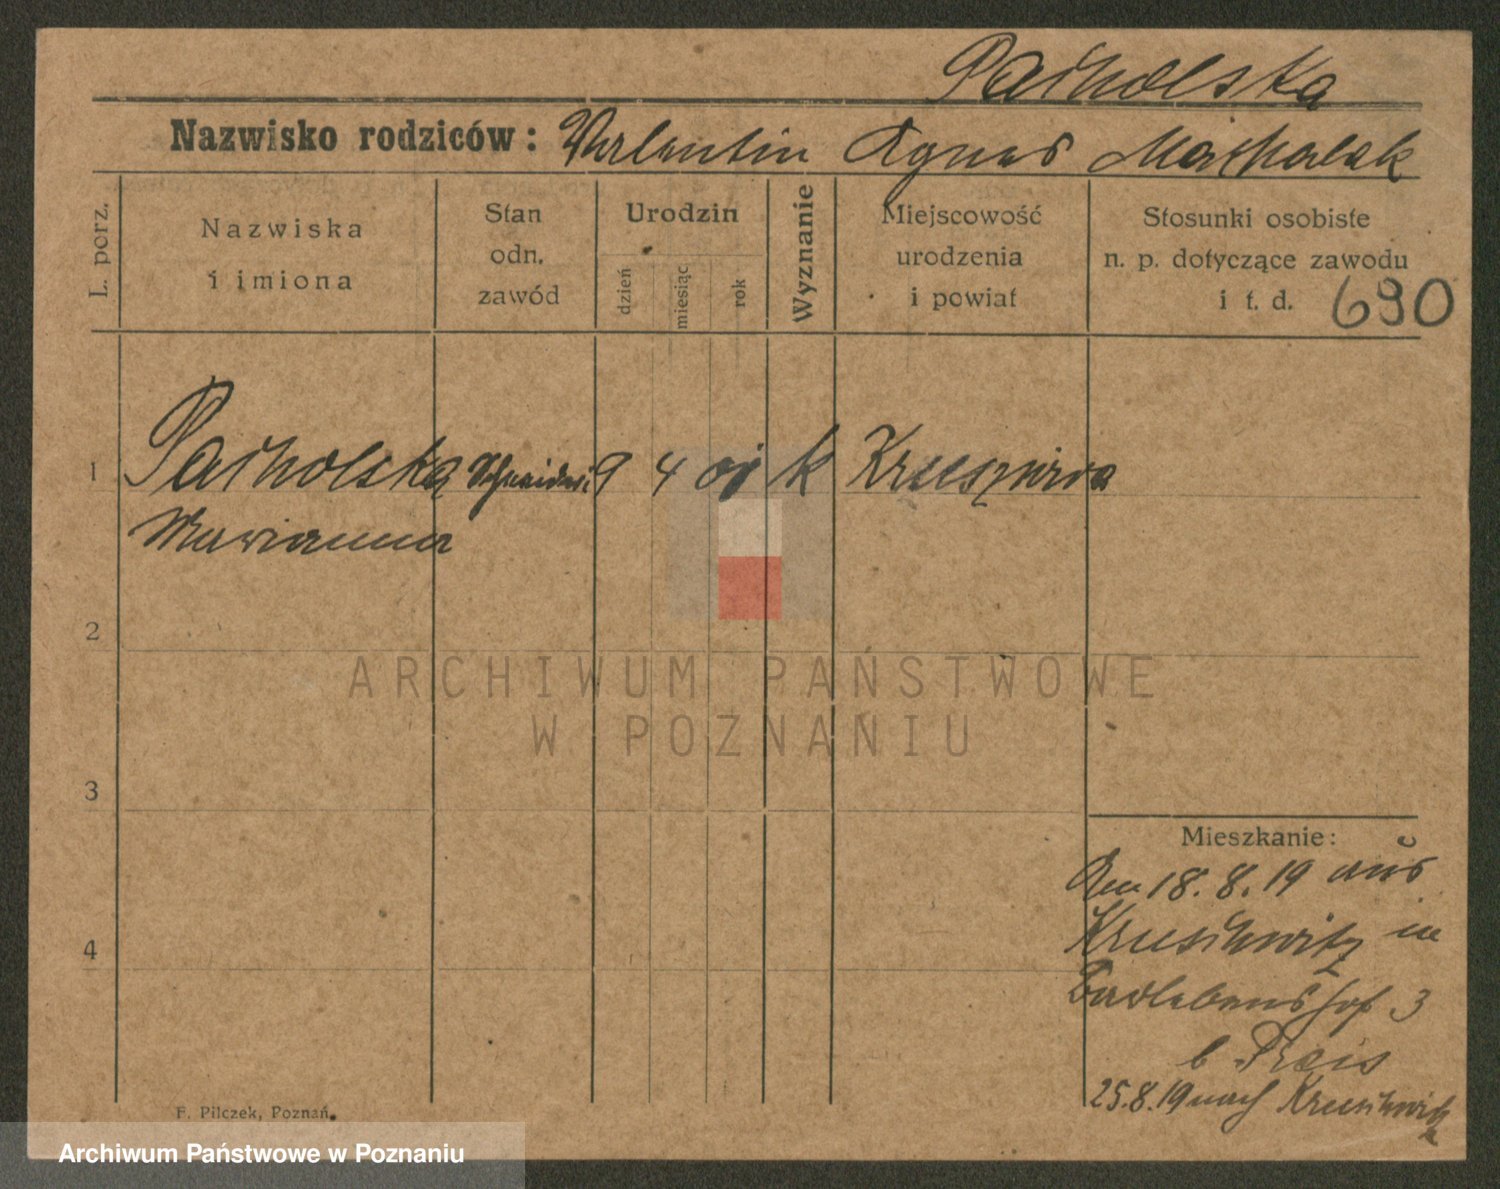 Pacholska
Nazwisko rodziców: Valentin Agnes Michalak
L. porz.
Nazwiska
i imiona
Stan
odn.
zawód
Urodzin
dzień
miesiąc
rok
Wyznanie
Miejscowość
urodzenia
i powiat
Stosunki osobiste
n. p. dotyczące zawodu
i t. d. 690
1 Pacholska 9 4 01 k Kruszwica
Marianna
2
3
4
Mieszkanie:
Am 18.8.19 aus
Kruschwitz in
3
b Preis
25.8.19 nach Kruschwitz
F. Pilczek, Poznań.
ARCHIWUM PAŃSTWOWE
W POZNANIU
Archiwum Państwowe w Poznaniu